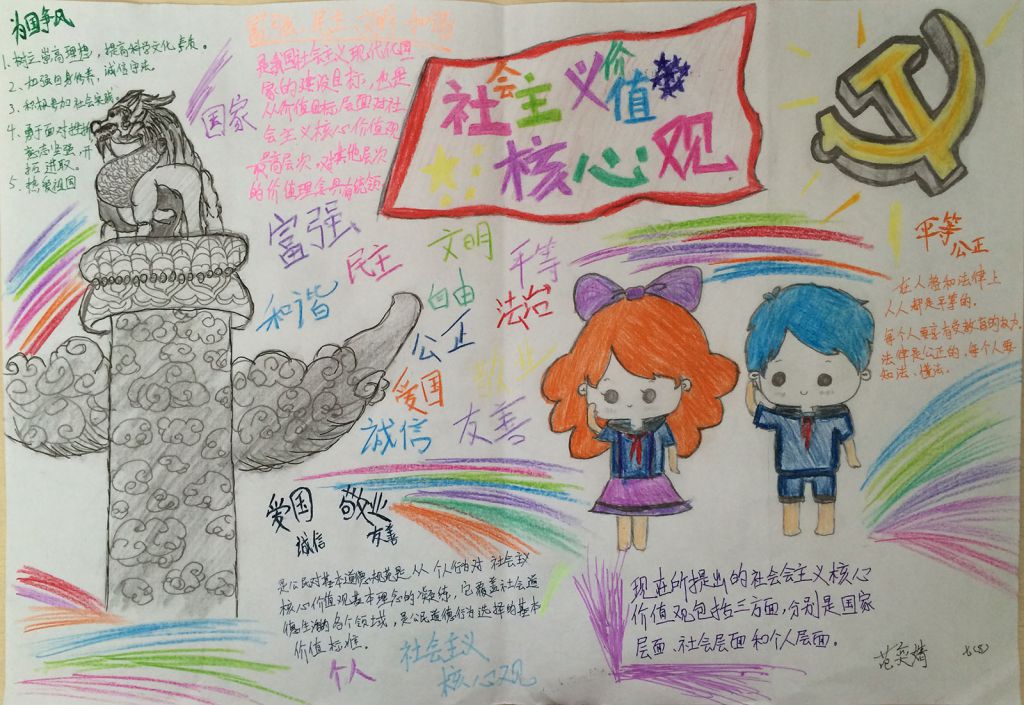 为国争风
1. 树立崇高理想，提高科学文化素质。
2、加强自身修养，诚信守法
3. 积极参加社会实践
4. 勇于面对挫折
意志坚强，开
拓进取。
5. 热爱祖国
国家
富强、民主、文明、和谐
是我国社会主义现代化国
家的建设目标，也是
从价值目标层面对社
会主义核心价值观
最高层次，对其他层次
的价值理念具有统领
社会主义价值
核心观
富强
民主
文明
平等
和谐
自由
法治
公正
爱国
敬业
诚信
友善
平等
公正
在人格和法律上
人人都是平等的.
每个人要享有受教育的权力.
法律是公正的，每个人要
知法、懂法.
爱国 敬业
诚信 友善
是公民对基本道德规范是从个人行为对社会主义
核心价值观基本理念的凝练，它覆盖社会道
德生活的各个领域，是公民道德行为选择的基本
价值标准.
个人
社会主义
核心观
现在所提出的社会会主义核心
价值观包括三方面，分别是国家
层面、社会层面和个人层面。